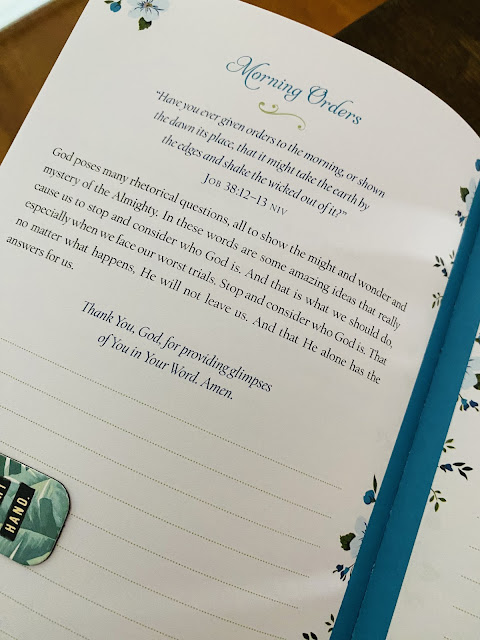 Morning Orders
"Have you ever given orders to the morning, or shown
the dawn its place, that it might take the earth by
the edges and shake the wicked out of it?"
JOB 38:12–13 NIV
God poses many rhetorical questions, all to show the might and wonder and
mystery of the Almighty. In these words are some amazing ideas that really
cause us to stop and consider who God is. And that is what we should do,
especially when we face our worst trials. Stop and consider who God is. That
no matter what happens, He will not leave us. And that He alone has the
answers for us.
Thank You, God, for providing glimpses
of You in Your Word. Amen.
HAND.